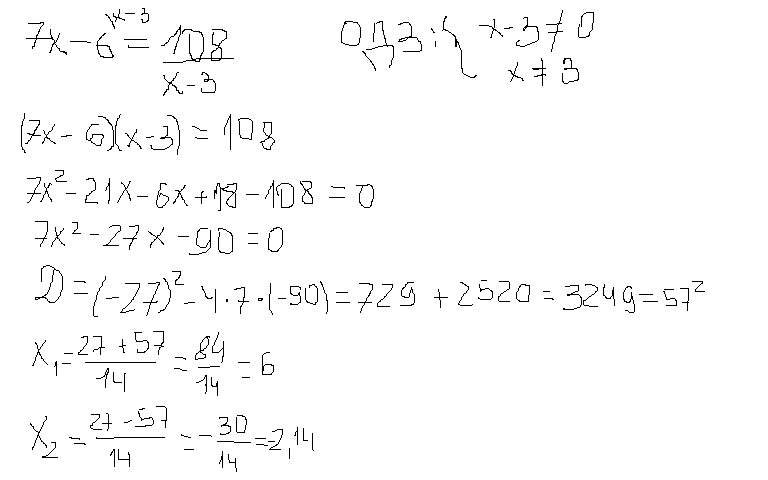 7x-6^{|x-3} = 108/(x-3)   ОДЗ: { x-3≠0
x≠3
(7x-6)(x-3) = 108
7x²-21x-6x+18-108=0
7x²-27x-90=0
D=(-27)²-4·7·(-90)=729+2520=3249=57²
x₁=(27+57)/14=84/14=6
x₂=(27-57)/14=-30/14=-2,14